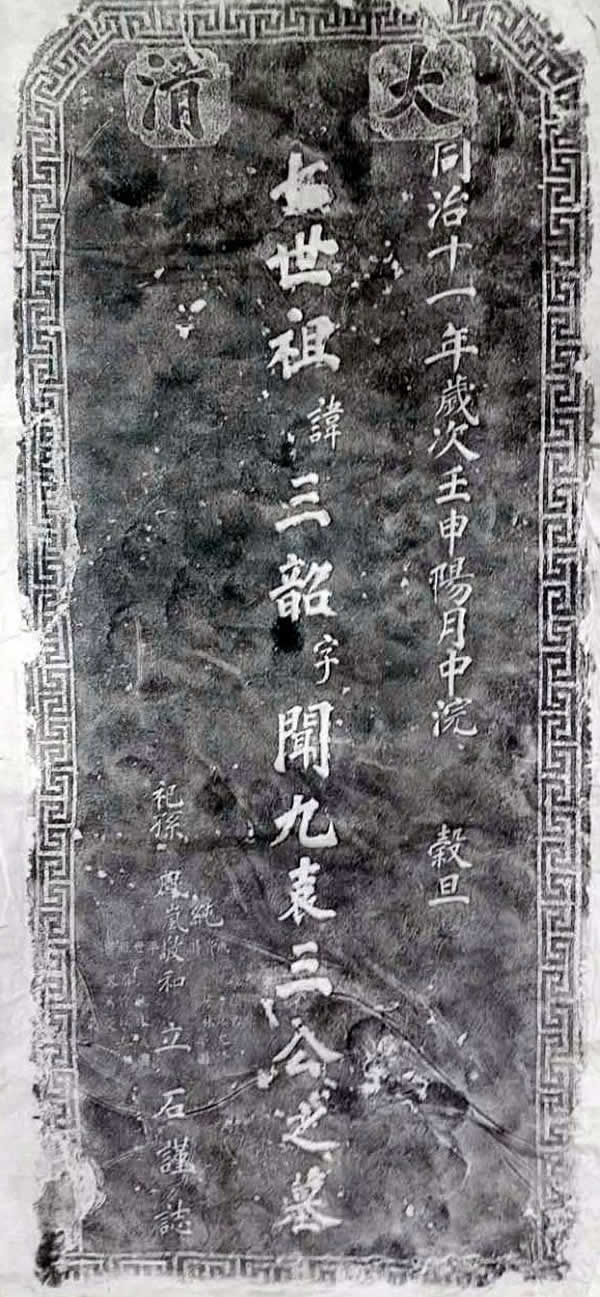 大清
同治十一年歲次壬申陽月中浣 穀旦
七世祖諱三韶字聞九袁三公之墓
祀孫 鳳嵐敬和 立石謹誌
純